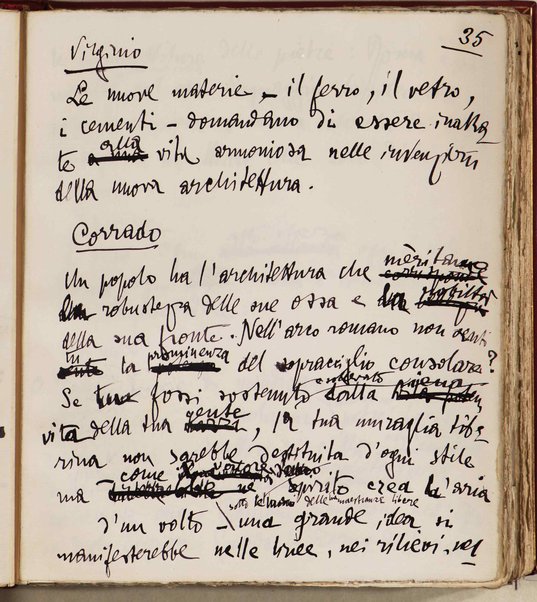 35
Virginio
Le nuove materie – il ferro, il vetro,
i cementi – domandano di essere inalza
te alla vita armoniosa nelle invenzioni
della nuova architettura.
Corrado
Un popolo ha l'architettura che mèritano
la robustezza delle sue ossa e la nobiltà
della sua fronte. Nell'arco romano non senti
tu la prominenza del sopraciglio consolare?
Se fossi sostenuto dalla
vita della tua gente, la tua muraglia tibe-
rina non sarebbe destituita d'ogni stile
ma come spirito crea l'aria
sotto le mani delle maestranze libere
d'un volto – una grande idea si
manifesterebbe nelle linee, nei rilievi, nel